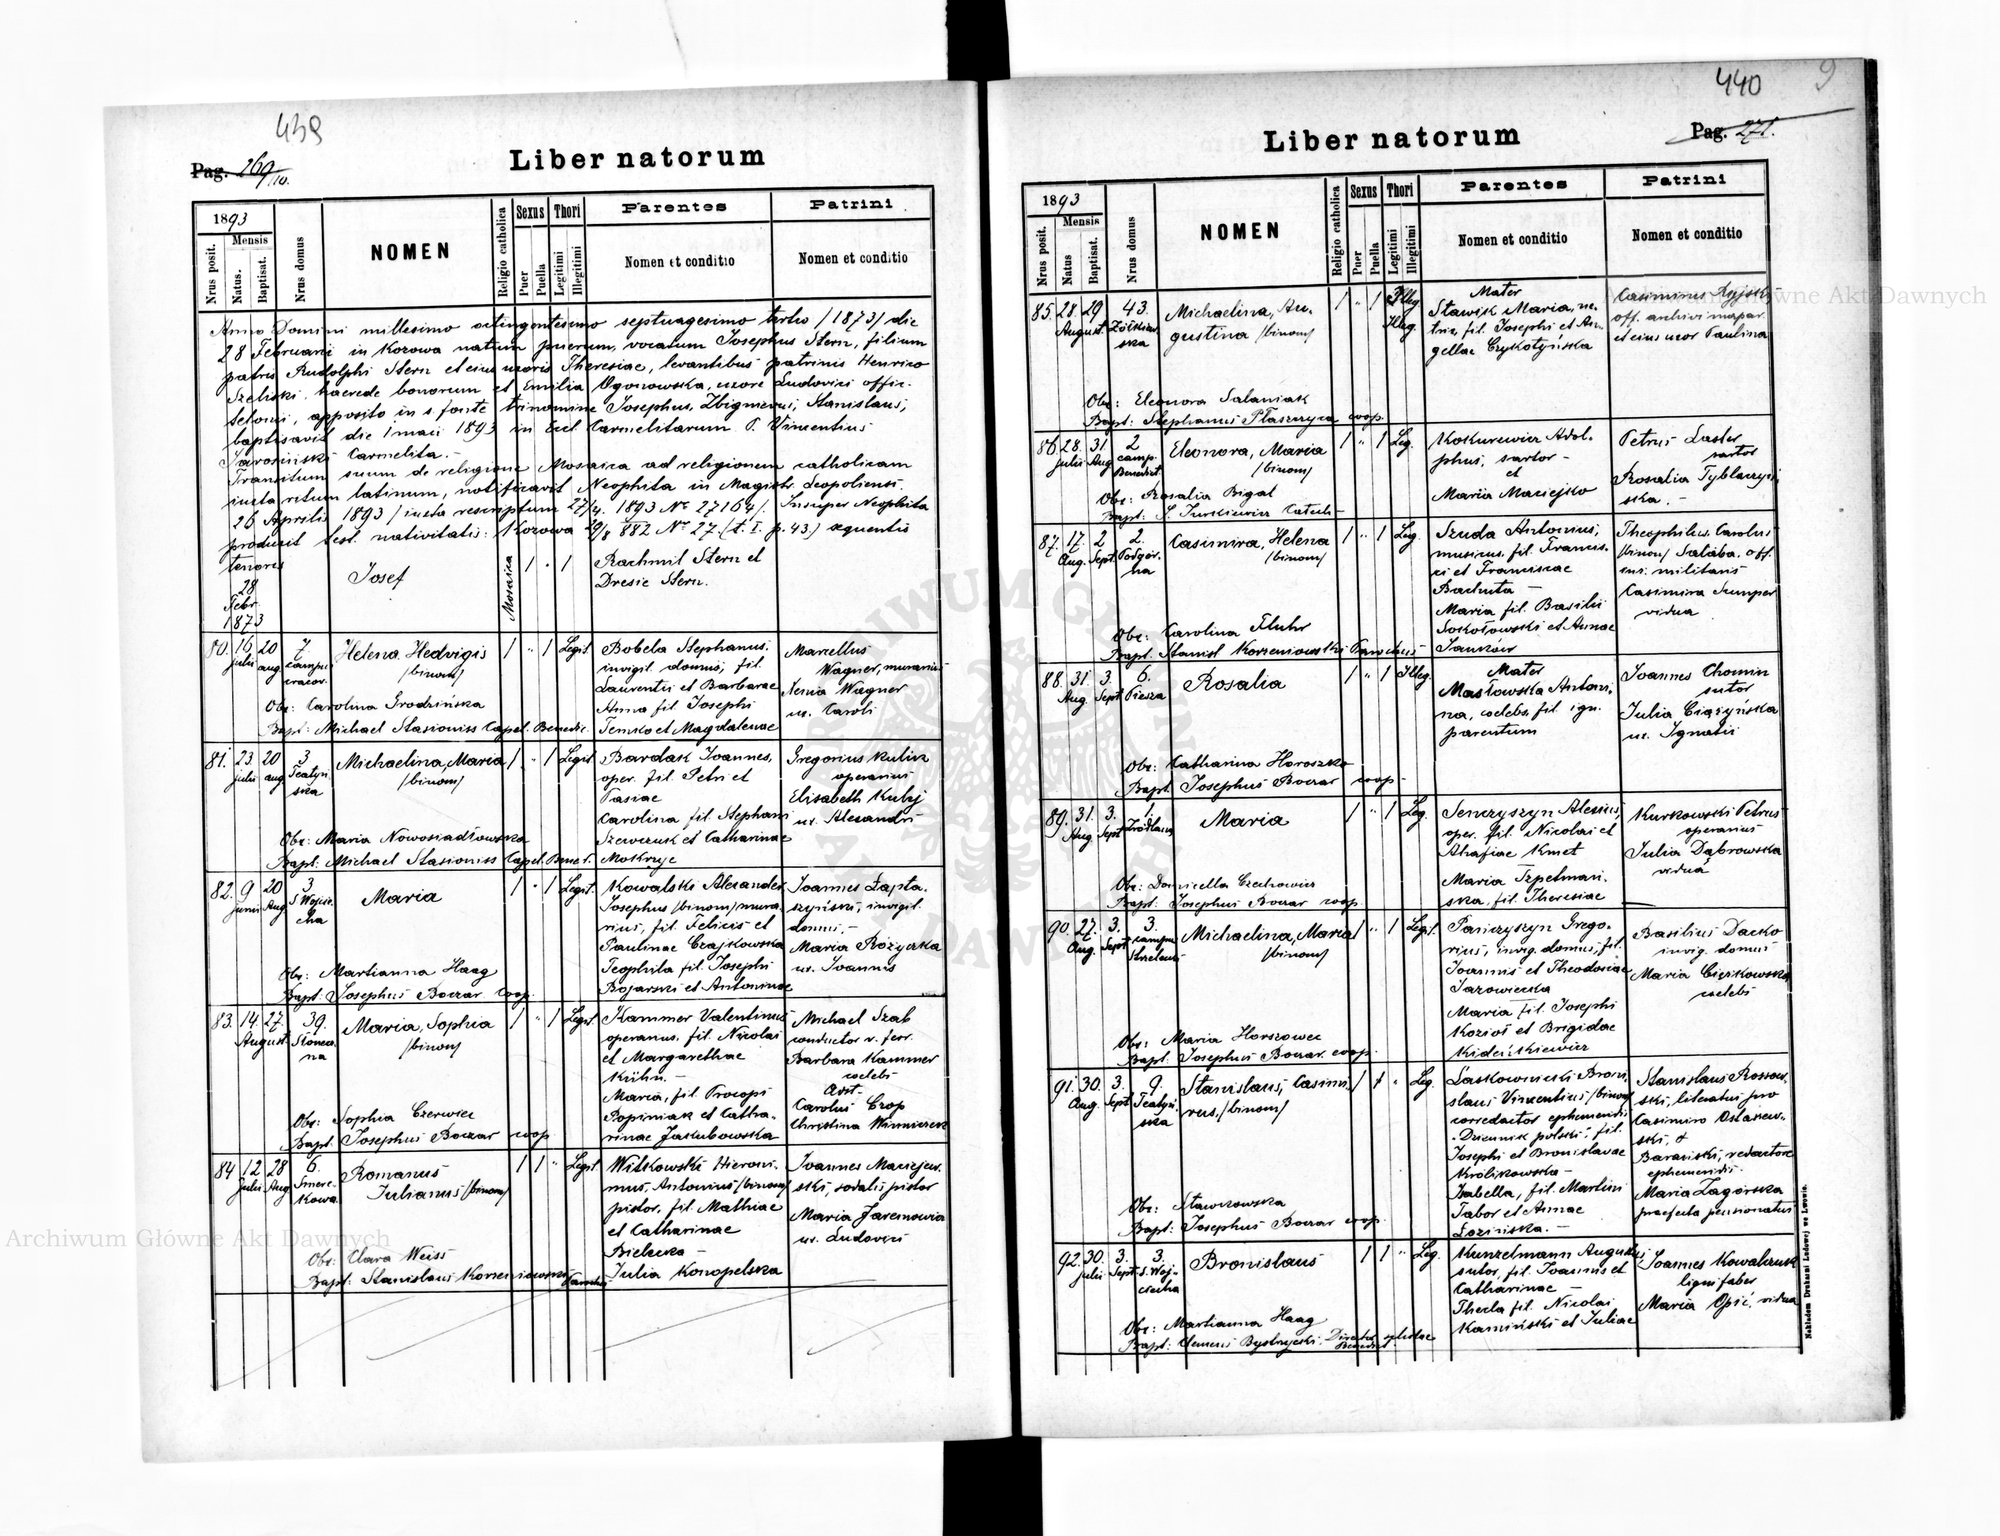 439
Pag. 269/10.
Liber natorum
1893
Nrus posit.
Mensis
Natus.
Baptisat.
Nrus domus
NOMEN
Religio catholica
Sexus
Puer
Puella
Thori
Legitimi
Illegitimi
Parentes
Nomen et conditio
Patrini
Nomen et conditio
Anno Domini millesimo octingentesimo septuagesimo tertio /1873/ die
28 Februarii in Kozowa natum puerum, vocatum Josephus Stern, filium
patris Rudolphi Stern et eius uxoris Theresiae, levantibus patrinis Henrico
haerede bonorum et Emilia Ogonowska, uxore Ludovici offic.
apposito in s. fonte trinomine Josephus, Zbigneus, Stanislaus,
baptisavit die 1 maii 1893 in Eccl. Carmelitarum P. Vincentius
Jarosiński Carmelita.-
Transitum suum de religione Mosaica ad religionem catholicam
iuxta ritum latinum, notificavit Neophita in Magistr. Leopoliensi.
26 Aprilis 1893 / iuxta rescriptum 27/4. 1893 Nr 27164/. Insuper Neophita
produxit test. nativitatis: Kozowa 29/8 882 Nr 27 (t. I. p. 43.) sequentis
tenoris
28 Febr. 1873
Josef
Mosaica
1 . 1
Rachmil Stern et
Dresie Stern.
80. 16 julii 20 aug 7 campi cracov.
Helena Hedvigis
/binom/
1 " 1 Legit.
Bobela Stephanus,
invigil. domus, fil.
Laurentii et Barbarae
Anna fil. Josephi
Temko et Magdalenae
Marcellus
Wagner, murarius
Wagner
ux. Caroli
Obs: Carolina Grodzińska
Bapt: Michael Stasioniss Capel. Benedic.
81. 23 julii 20 aug 3 Teatyńska
Michaelina, Maria
/binom/
1 " 1 Legit
Bardak Joannes,
oper. fil. Petri et
Tasiae
Carolina fil. Stephani
Szewczuk et Catharinae
Mokrzyc
Gregorius Kulik
operarius
Elisabeth Kulij
ux. Alexandri
Obs: Maria Nowosiadłowska
Bapt: Michael Stasioniss Capel. Bened.
82. 9 Junii 20 Aug. 3 S Wojciecha
Maria
1 " 1 Legit.
Kowalski Alexander
Josephus /binom/ mura-
rius, fil. Felicis et
Paulinae Czajkowska
Teophila fil. Josephi
Bojarski et Antoninae
Joannes Łapta-
szyński, invigil.
domus.-
Maria Rożycka
ux. Joannis
Obs: Martianna Haag
Bapt: Josephus Boczar coop.
83. 14. 27. August. 39. Słoneczna
Maria, Sophia
/binom/
1 " 1 Legit.
Kammer Valentinus
operarius, fil. Nicolai
et Margarethae
Kühn.-
Maria, fil. Procopi
Popiniak et Catha-
rinae Jakubowska
Michael Szab
conductor v. ferr.
Barbara Kammer
coelebs
Asst.
Carolus Czop
Christina Winniczek
Obs: Sophia Czerwiec
Bapt: Josephus Boczar coop
84 12 Julii 28 Aug 6. Smerekowa
Romanus
Julianus /binom/
1 1 " Legit.
Witkowski Hieroni-
mus, Antonius /binom/
pistor, fil. Mathiae
et Catharinae
Bielecka -
Julia Konopelska
Joannes Maciejew-
ski, sodalis pistor
Maria Jaremowia
ux. Ludovici
Obs: Clara Weiss
Bapt: Stanislaus Korzeniowski Parochus
440
9
Pag. 271.
Liber natorum
1893
Nrus posit.
Mensis
Natus
Baptisat.
Nrus domus
NOMEN
Religio catholica
Sexus
Puer
Puella
Thori
Legitimi
Illegitimi
Parentes
Nomen et conditio
Patrini
Nomen et conditio
85. 28. 29 August. 43. Żółkiewska
Michaelina, Au-
gustina /binom/
1 " 1 Illeg. Illeg.
Mater
Stawik Maria, nu-
trix, fil. Josephi et An-
gellae Czykotyńska
Casimirus
off. archivi mapar.
et eius uxor Paulina
Obs: Eleonora Salaniak
Bapt: Stephanus Płaszczyca coop.
86. 28. julii 31. Aug 2 camp. Benedict.
Eleonora, Maria
/binom/
1 " 1 Leg.
Kokurewicz Adol-
phus, sartor -
et
Maria Maciejko
Petrus Laster
sartor
Rosalia Tyblaczyń-
ska.-
Obs: Rosalia Bigal
Bapt: S. Jurkiewicz Catech-
87. 17. Aug. 2 Sept. 2. Podgórna
Casimira, Helena
/binom/
1 " 1 Leg.
Szuda Antonius,
musicus, fil. Francis-
ci et Franciscae
Bachuta -
Maria fil. Basilii
Sokołowski et Annae
Janków
Theophilus, Carolus
/binom/ Salaba, off.
cur. militaris
Casimira Kumper
vidua
Obs: Carolina Fluhr
Bapt: Stanisl Korzeniowski Parochus
88. 31. Aug. 3. Sept 6. Piesza
Rosalia
1 " 1 Illeg.
Mater
Masłowska Antoni-
na, coelebs, fil. ign.
parentum
Joannes Chomin
sutor
Julia Ciążyńska
ux. Ignatii
Obs: Catharina Horoszko
Bapt: Josephus Boczar coop-
89. 31. Aug. 3. Sept. 1. Źródlana
Maria
1 " 1 Leg.
Senczyszyn Alexius,
oper. fil. Nicolai et
Ahafiae Kmet
Maria Szpetmań-
ska, fil. Theresiae
Kurkowski Petrus
operarius
Julia Dąbrowska
vidua
Obs: Domicella Czechowicz
Bapt. Josephus Boczar coop.
90. 27. Aug. 3. Sept. 3. campi Strzelecki
Michaelina, Maria
/binom/
1 " 1 Legit.
Panczyszyn Grego-
rius, invig. domus, fil.
Joannis et Theodosiae
Jazowiecka
Maria fil. Josephi
Kozioł et Brigidae
Basilius Dacko
invig. domus
Maria Cięzkowska
coelebs
Obs: Maria Horszowec
Bapt: Josephus Boczar. coop.
91. 30. Aug. 3. Sept. 9. Teatyńska
Stanislaus, Casimi-
rus, /binom/
1 1 " Leg.
Laskownicki Broni-
slaus Vincentius /binom/
corredactor ephemeridis
"Dziennik polski", fil.
Josephi et Bronislavae
Królikowska -
Isabella, fil. Martini
Tabor et Annae
Łozińska.-
Stanislaus Rossow-
ski, literatus pro
Casimiro Ostaszew-
ski, &
Barański, redactore
ephemeridis
Maria Zagórska
praefecta pensionatus
Obs: Stawkowska
Bapt: Josephus Boczar coop.
92. 30. Julii 3. Sept. 3. S. Wojciecha
Bronislaus
1 1 " Leg.
Kunzelmann Augustus
sutor, fil. Joannis et
Catharinae -
Thecla fil. Nicolai
Kamiński et Juliae
Joannes Kowalczuk
ligni faber
Maria Opić, vidua
Obs: Martianna Haag
Bapt: Clemens Bystrzycki. Director scholae
Benedict.
Nakładem Drukarni Ludowej we Lwowie.
Archiwum Główne Akt Dawnych
Archiwum Główne Akt Dawnych
ARCHIWUM GŁÓWNE AKT DAWNYCH